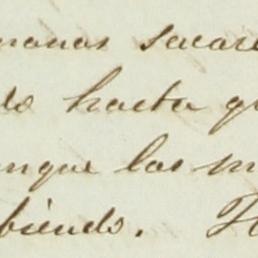 manas sacare
do hasta qu
unque las m
biendo. H